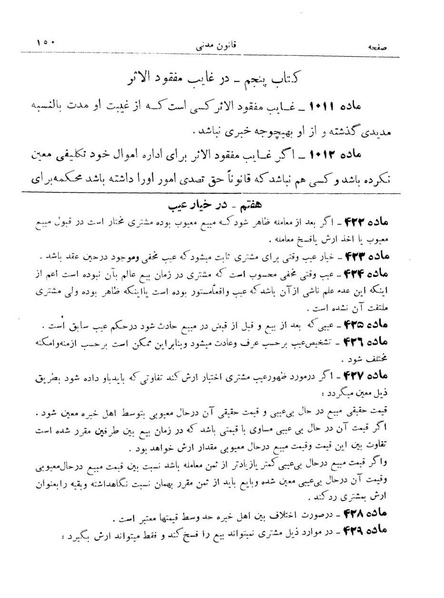 صفحه قانون مدنی ۱۵۰
کتاب پنجم ـ در غایب مفقود الاثر
ماده ۱۰۱۱ ـ غایب مفقود الاثر کسی است که از غیبت او مدت بالنسبه
مدیدی گذشته و از او بهیچوجه خبری نباشد .
ماده ۱۰۱۲ ـ اگر غایب مفقود الاثر برای اداره اموال خود تکلیفی معین
نکرده باشد و کسی هم نباشد که قانوناً حق تصدی امور اورا داشته باشد محکمه برای
هفتم ـ در خیار عیب
ماده ۴۲۲ ـ اگر بعد از معامله ظاهر شود که مبیع معیوب بوده مشتری مختار است در قبول مبیع
معیوب با اخذ ارش یا فسخ معامله .
ماده ۴۲۳ ـ خیار عیب وقتی برای مشتری ثابت میشود که عیب مخفی وموجود درحین عقد باشد .
ماده ۴۲۴ ـ عیب وقتی مخفی محسوب است که مشتری در زمان بیع عالم بآن نبوده است اعم از
اینکه این عدم علم ناشی از آن باشد که عیب واقعاً مستور بوده است یا اینکه ظاهر بوده ولی مشتری
ملتفت آن نشده است .
ماده ۴۲۵ ـ عیبی که بعد از بیع و قبل از قبض در مبیع حادث شود درحکم عیب سابق است .
ماده ۴۲۶ ـ تشخیص عیب برحسب عرف وعادت میشود وبنابراین ممکن است برحسب ازمنه وامکنه
مختلف شود .
ماده ۴۲۷ ـ اگر درمورد ظهورعیب مشتری اختیار ارش کند تفاوتی که باید باو داده شود بطریق
ذیل معین میگردد :
قیمت حقیقی مبیع در حال بی‌عیبی و قیمت حقیقی آن درحال معیوبی بتوسط اهل خبره معین شود .
اگر قیمت آن در حال بی عیبی مساوی با قیمتی باشد که در زمان بیع بین طرفین مقرر شده است
تفاوت بین این قیمت وقیمت مبیع درحال معیوبی مقدار ارش خواهد بود .
واگر قیمت مبیع درحال بی‌عیبی کمتر یازیادتر از ثمن معامله باشد نسبت بین قیمت مبیع درحال معیوبی
وقیمت آن در حال بی‌عیبی معین شده وبایع باید از ثمن مقرر بهمان نسبت نگاهداشته وبقیه رابعنوان
ارش بمشتری رد کند .
ماده ۴۲۸ ـ درصورت اختلاف بین اهل خبره حد وسط قیمتها معتبر است .
ماده ۴۲۹ ـ در موارد ذیل مشتری نمیتواند بیع را فسخ کند و فقط میتواند ارش بگیرد :